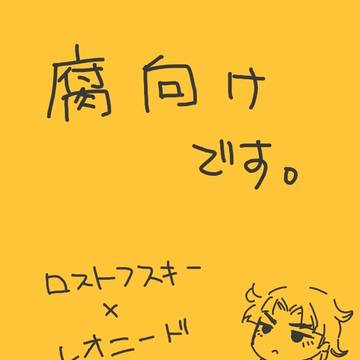 腐向け
です。
ロストフスキー
×
レオニード